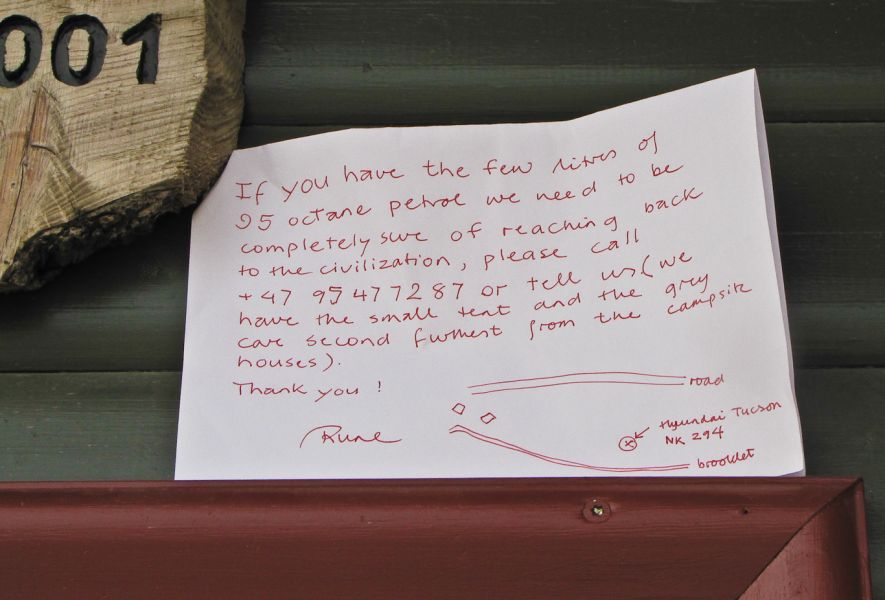 001
If you have the few litres of
95 octane petrol we need to be
completely sure of reaching back
to the civilization, please call
+47 95477287 or tell us (we
have the small tent and the grey
car second furthest from the campsite
houses).
Thank you!
Rune
road
Hyundai Tucson
NK 294
brooklet